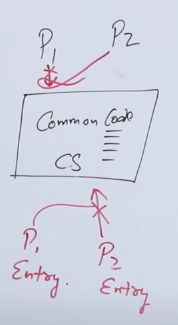 P1 P2
Common Code
CS
P1 P2
Entry. Entry